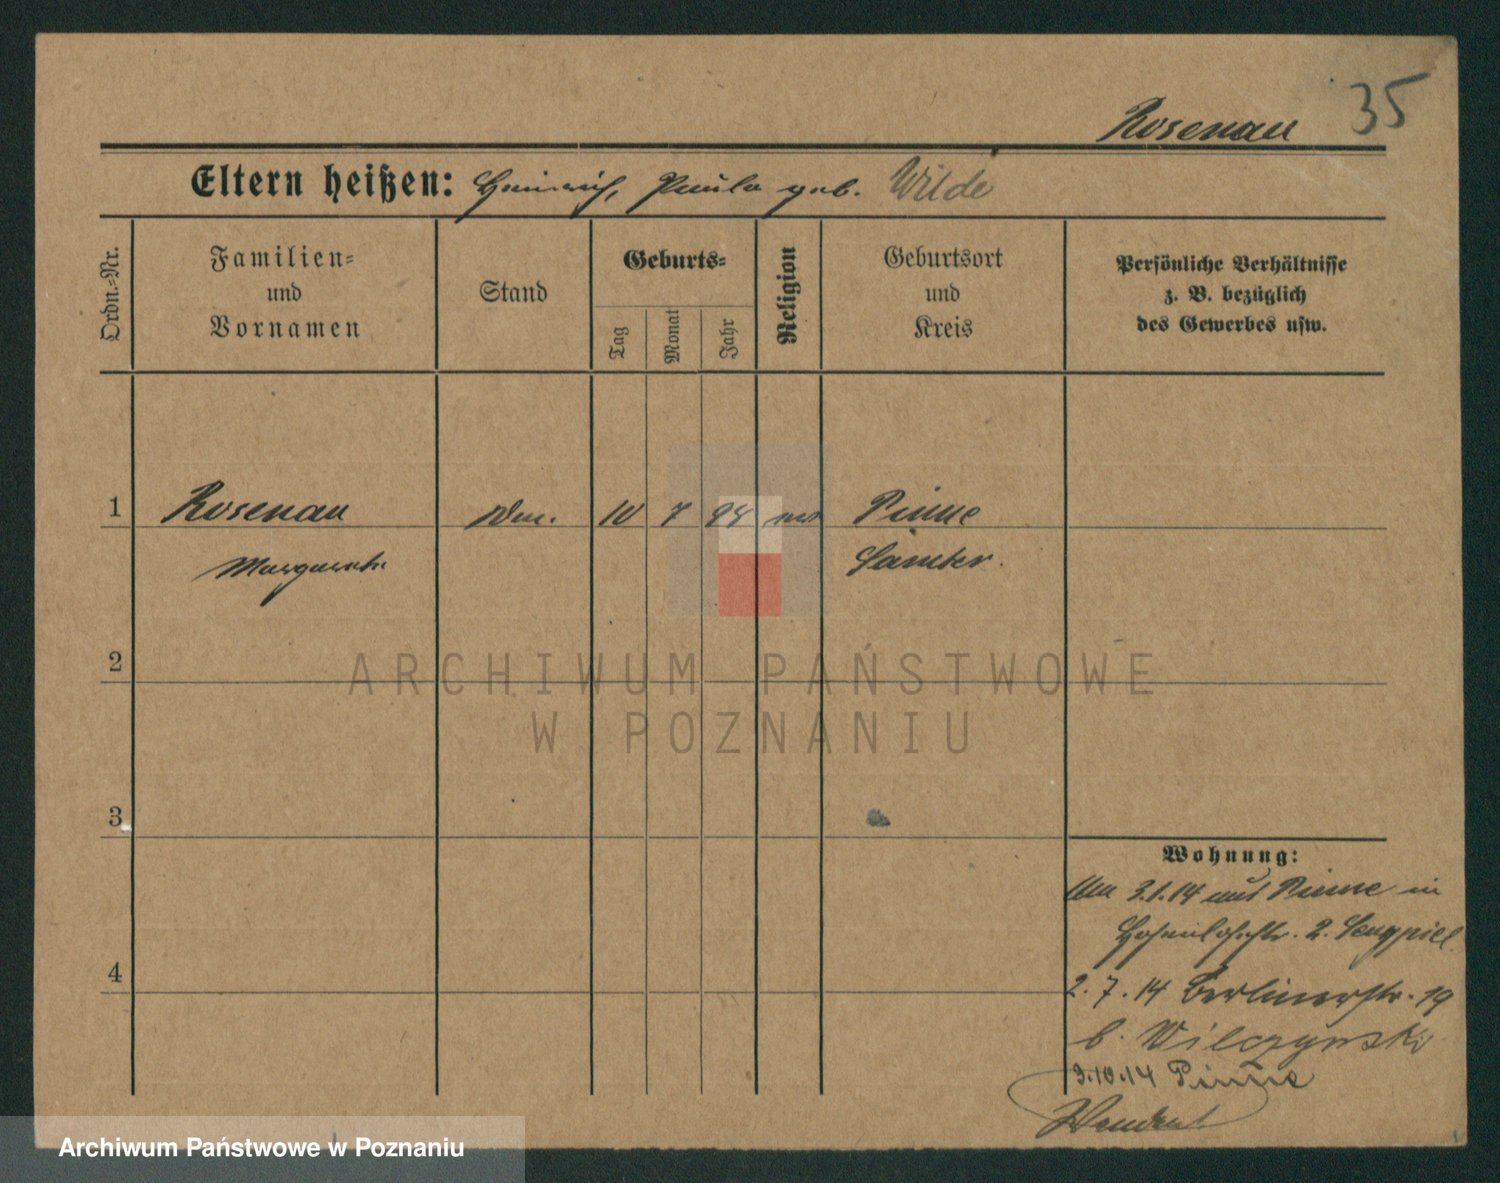 35
Rosenau
Eltern heißen: Heinrich, Paula geb. Wilde
Ordn.-Nr.
Familien-
und
Vornamen
Stand
Geburts-
Tag
Monat
Jahr
Religion
Geburtsort
und
Kreis
Persönliche Verhältnisse
z. B. bezüglich
des Gewerbes usw.
1 Rosenau 10 7 94 Pinne
Margarete Samter.
2
3
4
ARCHIWUM PAŃSTWOWE
W POZNANIU
Wohnung:
3.1.14 aus Pinne in
2.
2.7.14 Berlinerstr. 19
b. Wilczynski
9.10.14 Pinne
Archiwum Państwowe w Poznaniu